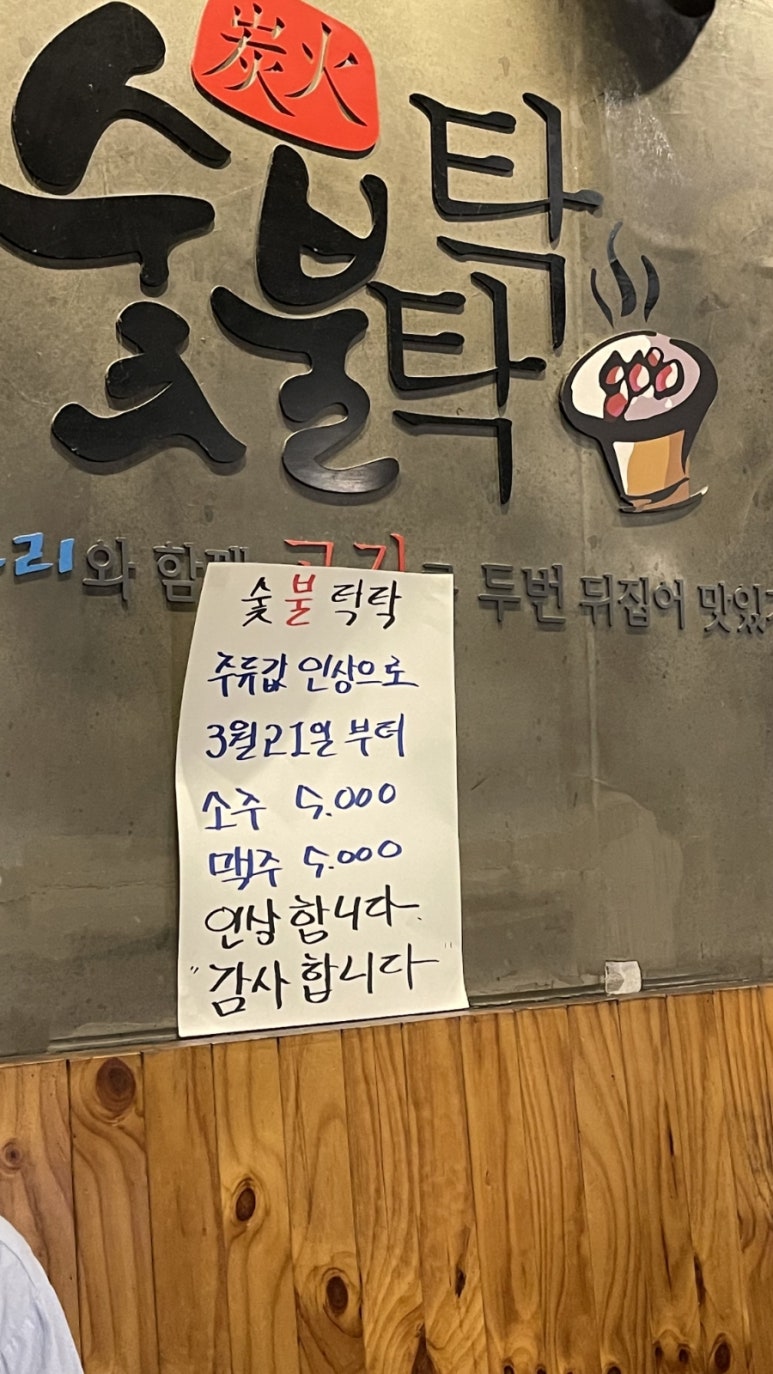 炭火
숯불탁탁
리와 함께 고기를 두번 뒤집어 맛있
숯불탁탁
주류값 인상으로
3월21일부터
소주 5.000
맥주 5.000
인상합니다.
"감사합니다"